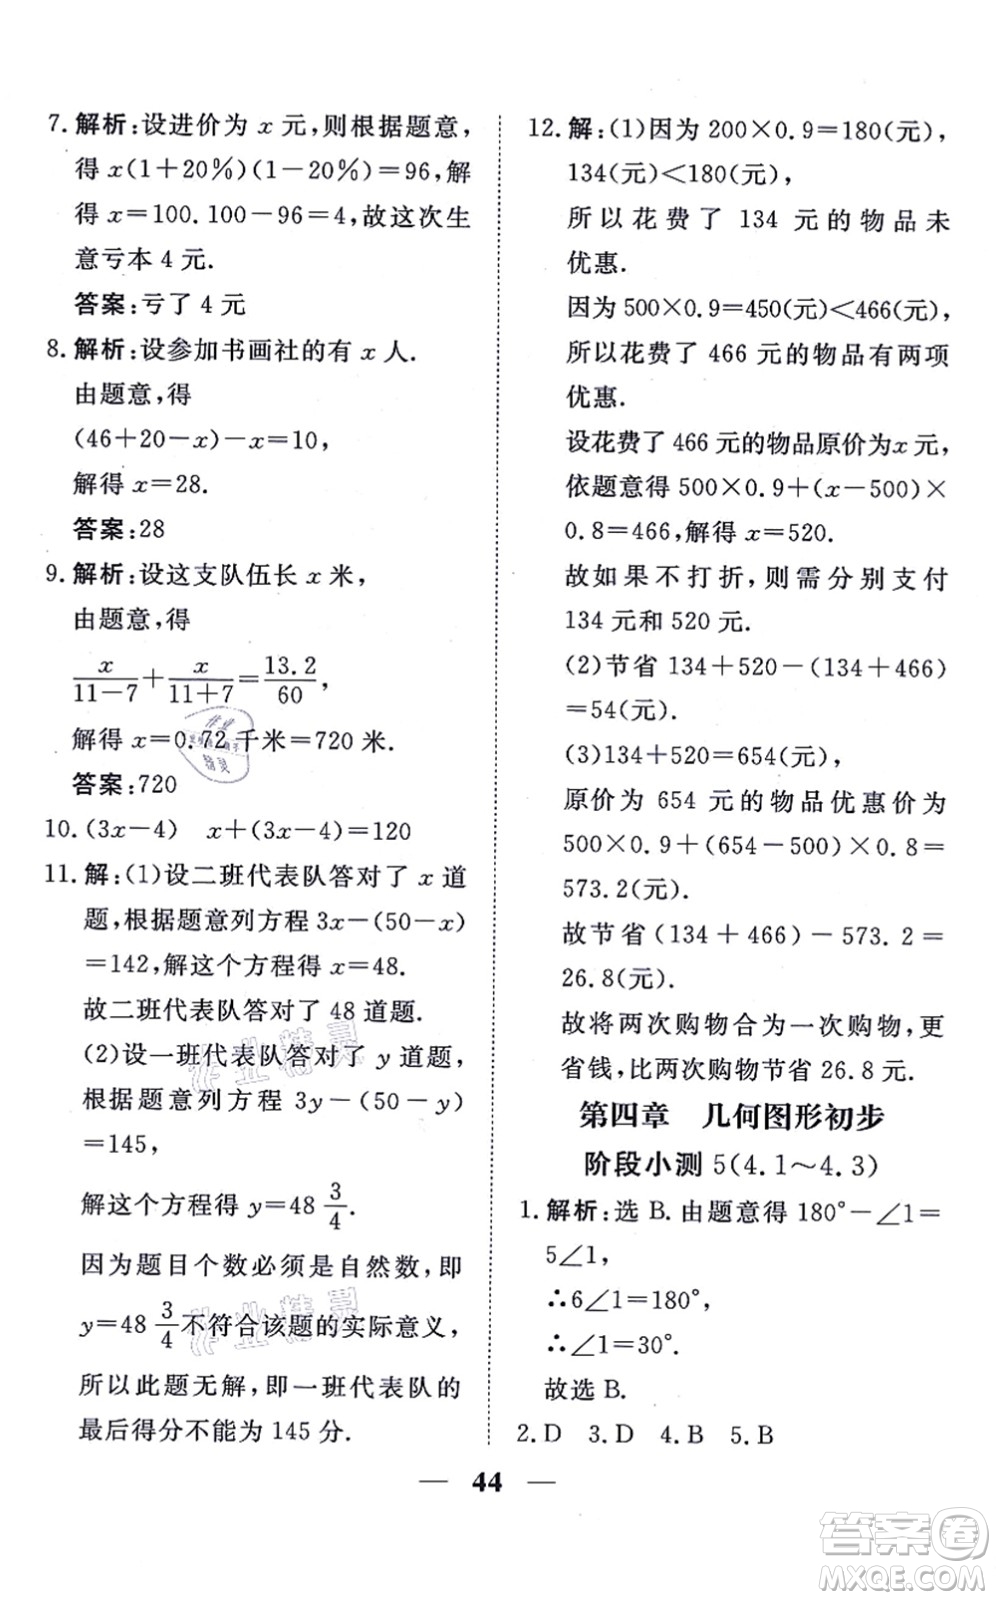 7. 解析:设进价为 x 元,则根据题意,
得 x(1+20%)(1-20%)=96,解
得 x=100.100-96=4,故这次生
意亏本 4 元.
答案:亏了 4 元
8. 解析:设参加书画社的有 x 人.
由题意,得
(46+20-x)-x=10,
解得 x=28.
答案:28
9. 解析:设这支队伍长 x 米,
由题意,得
x/(11-7)+x/(11+7)=13.2/60,
解得 x=0.72 千米=720 米.
答案:720
10. (3x-4) x+(3x-4)=120
11. 解:(1)设二班代表队答对了 x 道
题,根据题意列方程 3x-(50-x)
=142,解这个方程得 x=48.
故二班代表队答对了 48 道题.
(2)设一班代表队答对了 y 道题,
根据题意列方程 3y-(50-y)
=145,
解这个方程得 y=48 3/4.
因为题目个数必须是自然数,即
y=48 3/4 不符合该题的实际意义,
所以此题无解,即一班代表队的
最后得分不能为 145 分.
12. 解:(1)因为 200×0.9=180(元),
134(元)<180(元),
所以花费了 134 元的物品未
优惠.
因为 500×0.9=450(元)<466(元),
所以花费了 466 元的物品有两项
优惠.
设花费了 466 元的物品原价为 x 元,
依题意得 500×0.9+(x-500)×
0.8=466,解得 x=520.
故如果不打折,则需分别支付
134 元和 520 元.
(2)节省 134+520-(134+466)
=54(元).
(3)134+520=654(元),
原价为 654 元的物品优惠价为
500×0.9+(654-500)×0.8=
573.2(元).
故节省(134+466)-573.2=
26.8(元).
故将两次购物合为一次购物,更
省钱,比两次购物节省 26.8 元.
第四章 几何图形初步
阶段小测 5(4.1～4.3)
1. 解析:选 B. 由题意得 180°-∠1=
5∠1,
∴6∠1=180°,
∴∠1=30°.
故选 B.
2. D 3. D 4. B 5. B
— 44 —
作业精灵
作业精灵
答案卷
MXQE.COM